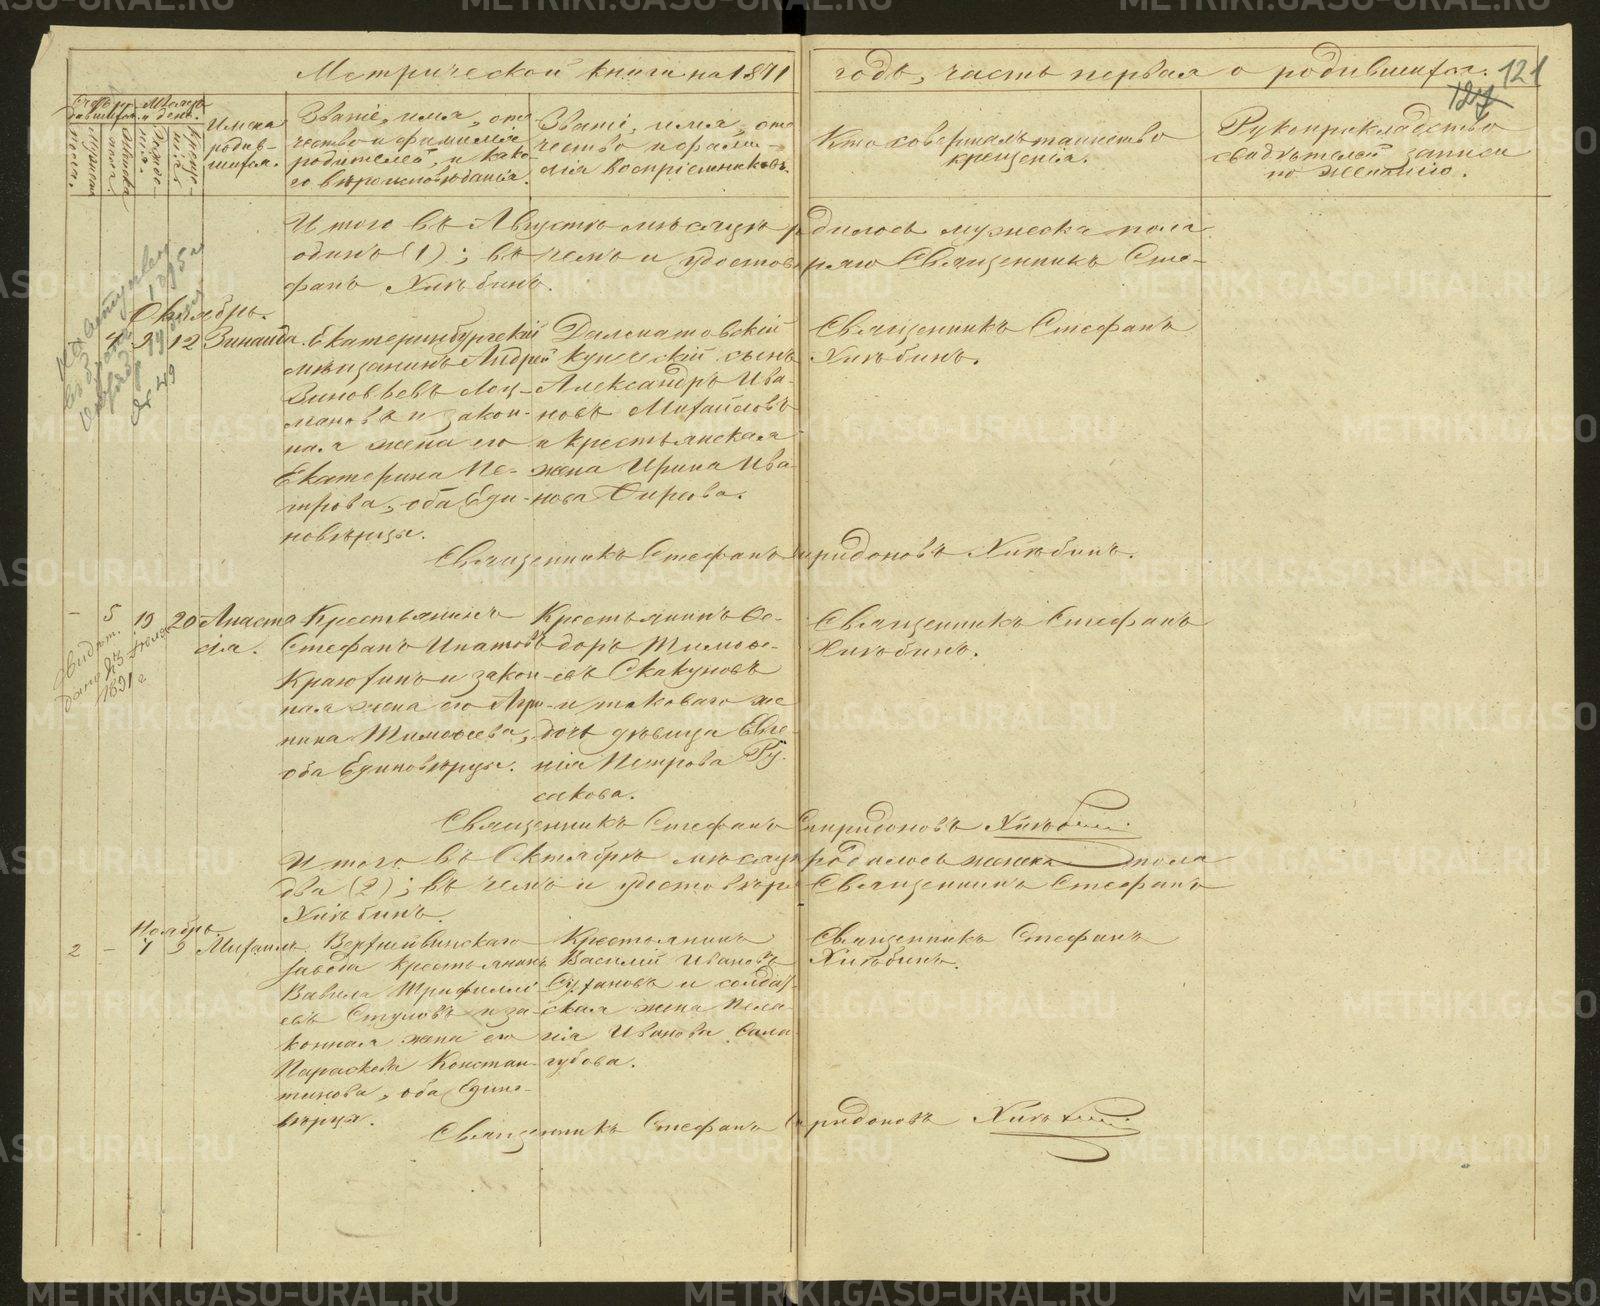 Метрической книги на 1871 годъ, часть первая о родившихся. 121
127
Счетъ родившихся.
Мѣсяцъ и день.
Мужеска пола.
Женска пола.
Рожденія.
Крещенія.
Имена родившихся.
Званіе, имя, отчество и фамилія родителей, и какого вѣроисповѣданія.
Званіе, имя, отчество и фамилія воспріемниковъ.
Кто совершалъ таинство крещенія.
Рукоприкладство свидѣтелей записи по желанію.
Итого въ Августѣ мѣсяцѣ родилось мужеска пола
одинъ (1); въ чемъ и удостовѣряю Священникъ Сте-
фанъ Хлѣбинъ.
Октябрь.
4 9 12 Зинаида.
Екатеринбургскій
мѣщанинъ Андрей
Зиновьевъ Лоц-
мановъ и закон-
ная жена его
Екатерина Пе-
трова, оба Еди-
новѣрцы.
Далматовскій
купческій сынъ
Александръ Ива-
новъ Михайловъ
и крестьянская
жена Ирина Ива-
нова Фирсова.
Священникъ Стефанъ
Хлѣбинъ.
№ 49
Священникъ Стефанъ Спиридоновъ Хлѣбинъ.
- 5 19 20 Анаста-
сія.
Крестьянинъ
Стефанъ Ипатовъ
Краюхинъ и закон-
ная жена его Агри-
пина Тимофеева,
оба Единовѣрцы.
Крестьянинъ Фе-
доръ Тимофе-
евъ Скакуновъ
и таковаго же
дочь дѣвица Евге-
нія Петрова Ру-
сакова.
Священникъ Стефанъ
Хлѣбинъ.
Свидѣт.
дано 23 Июля
1891 г
Священникъ Стефанъ Спиридоновъ Хлѣбинъ.
Итого въ Октябрѣ мѣсяцѣ родилось женска пола
два (2); въ чемъ и удостовѣряю Священникъ Стефанъ
Хлѣбинъ.
Ноябрь.
2 - 7 9 Михаилъ.
Верхнейвинскаго
завода крестьянинъ
Вавила Трифилли-
евъ Стуловъ и за-
конная жена его
Параскева Констан-
тинова, оба Едино-
вѣрцы.
Крестьянинъ
Василій Ивановъ
Сухановъ и солдат-
ская жена Пела-
гія Иванова Сала-
губова.
Священникъ Стефанъ
Хлѣбинъ.
Священникъ Стефанъ Спиридоновъ Хлѣбинъ.
METRIKI.GASO-URAL.RU